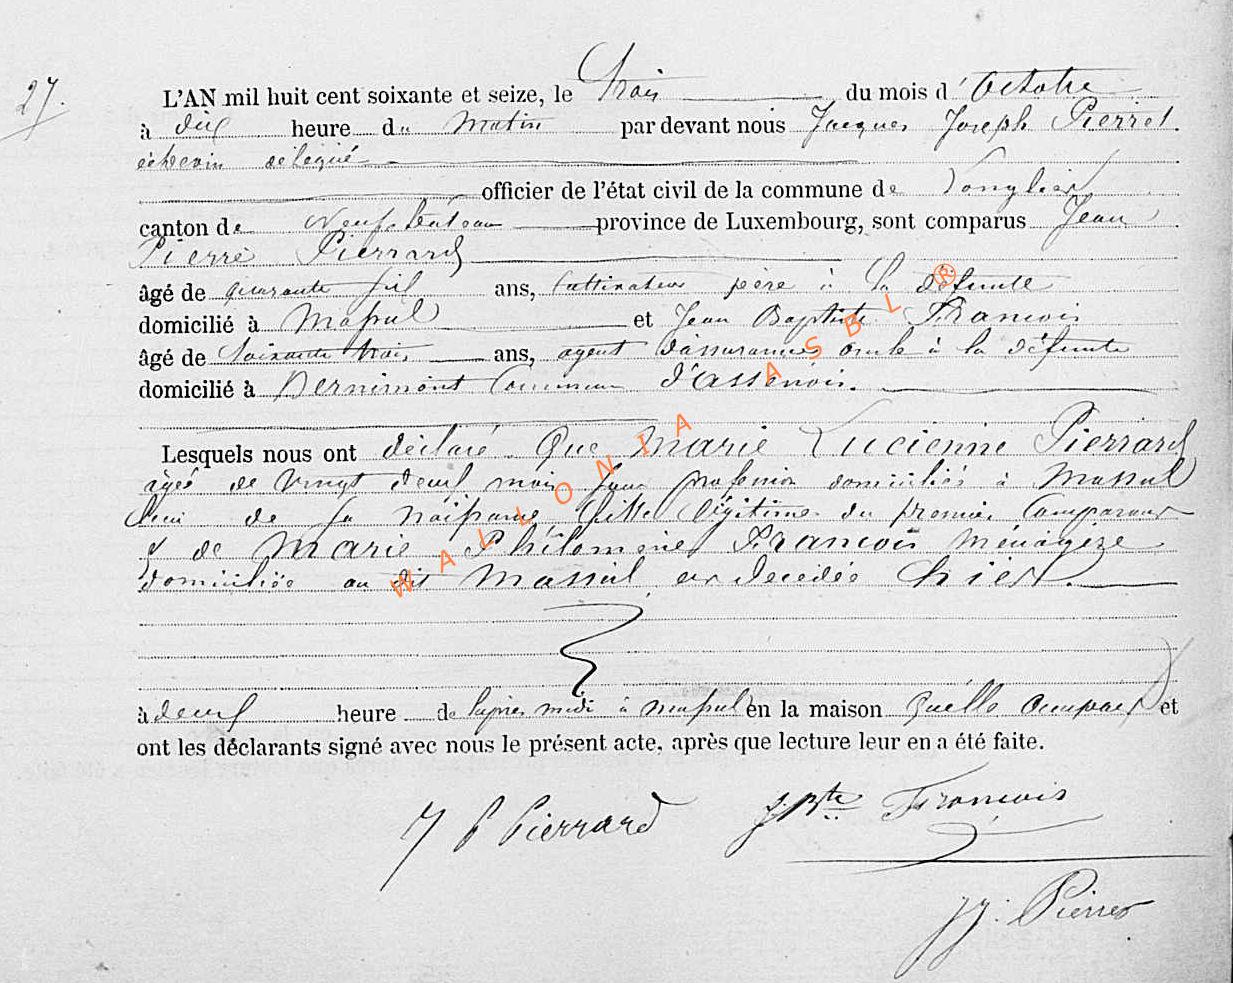 27.
L'AN mil huit cent soixante et seize, le Trois du mois d'Octobre
à dix heure du Matin par devant nous Jacques Joseph Pierret
échevin délégué
officier de l'état civil de la commune de Longlier
canton de Neufchateau province de Luxembourg, sont comparus Jean
Pierre Pierrard
âgé de quarante six ans, Cultivateur père à la défunte
domicilié à Massul et Jean Baptiste Francois
âgé de Soixante trois ans, agent d'assurances oncle à la défunte
domicilié à Bernimont Commune d'Assenois.
Lesquels nous ont déclaré Que Marie Lucienne Pierrard
âgée de Vingt deux mois sans profession domiciliée à Massul
lieu de sa naissance, fille légitime du premier Comparant
& de Marie Philomène Francois Ménagère
domiciliée au dit Massul, est decédée hier
à deux heure de l'après midi à Massul en la maison quelle occupait et
ont les déclarants signé avec nous le présent acte, après que lecture leur en a été faite.
J P Pierrard J. Bte Francois
JJ. Pierret
WALLONIA ASBL ®